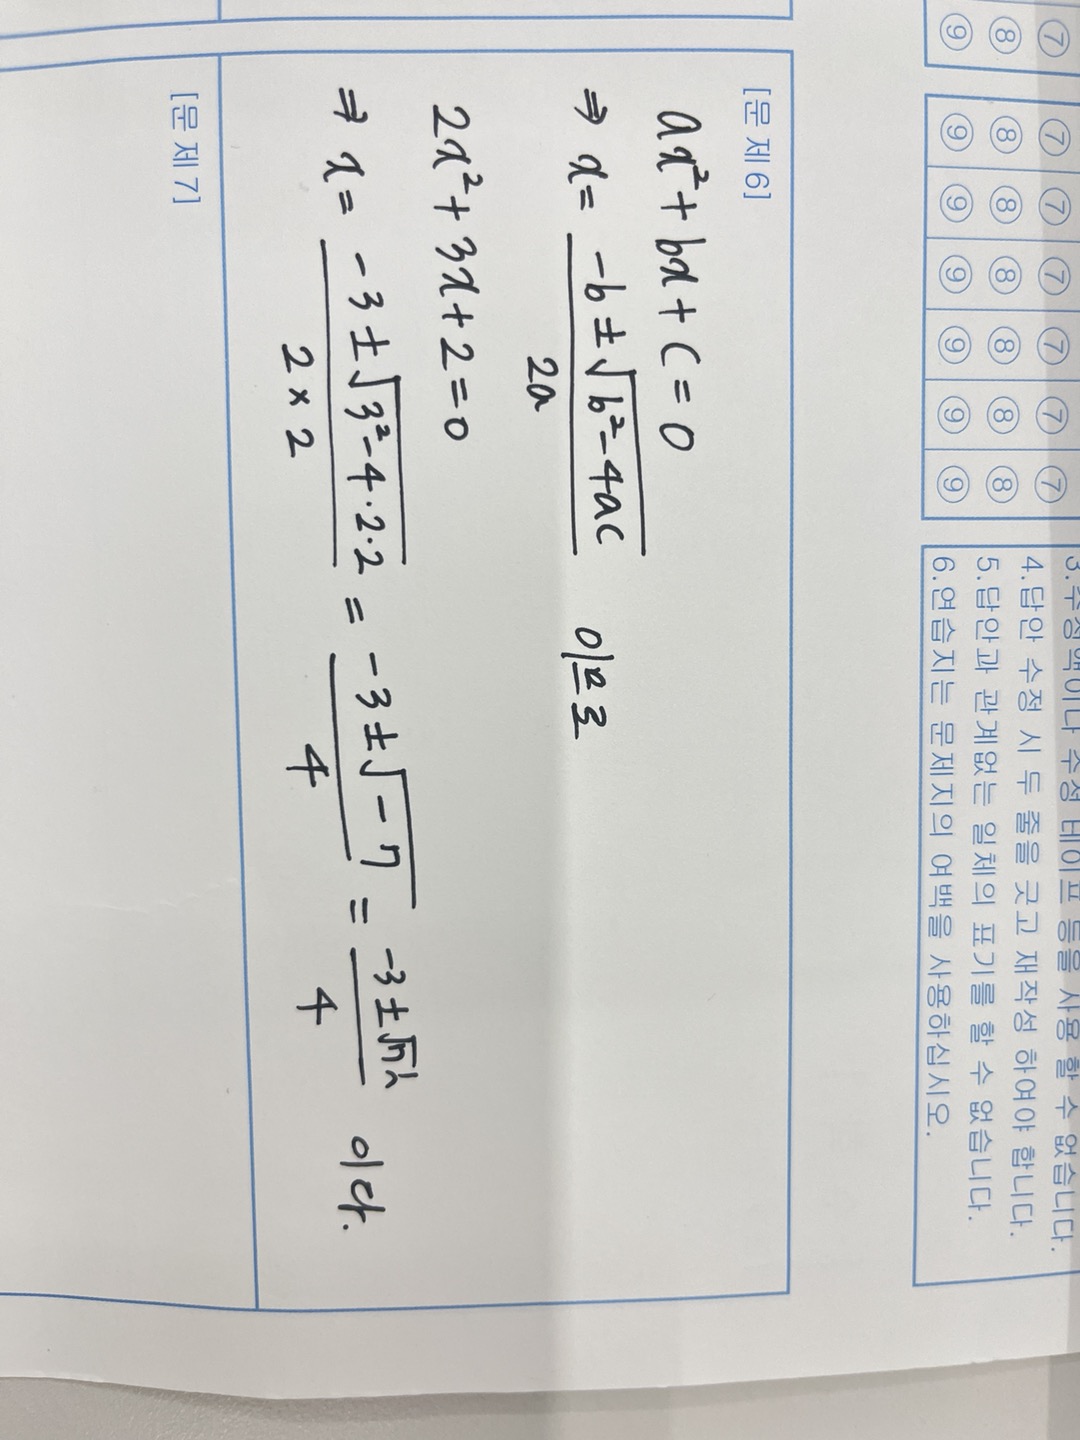 ⑦ ⑦ ⑦ ⑦ ⑦ ⑦ ⑦
⑧ ⑧ ⑧ ⑧ ⑧ ⑧ ⑧
⑨ ⑨ ⑨ ⑨ ⑨ ⑨ ⑨
3.수정액이나 수정 테이프 등을 사용 할 수 없습니다.
4.답안 수정 시 두 줄을 긋고 재작성 하여야 합니다.
5.답안과 관계없는 일체의 표기를 할 수 없습니다.
6.연습지는 문제지의 여백을 사용하십시오.
[문 제 6]
ax² + bx + c = 0
⇒ x = (-b ± √(b²-4ac)) / 2a 이므로
2x² + 3x + 2 = 0
⇒ x = (-3 ± √(3²-4·2·2)) / (2 × 2) = (-3 ± √(-7)) / 4 = (-3 ± √7 i) / 4 이다.
[문 제 7]